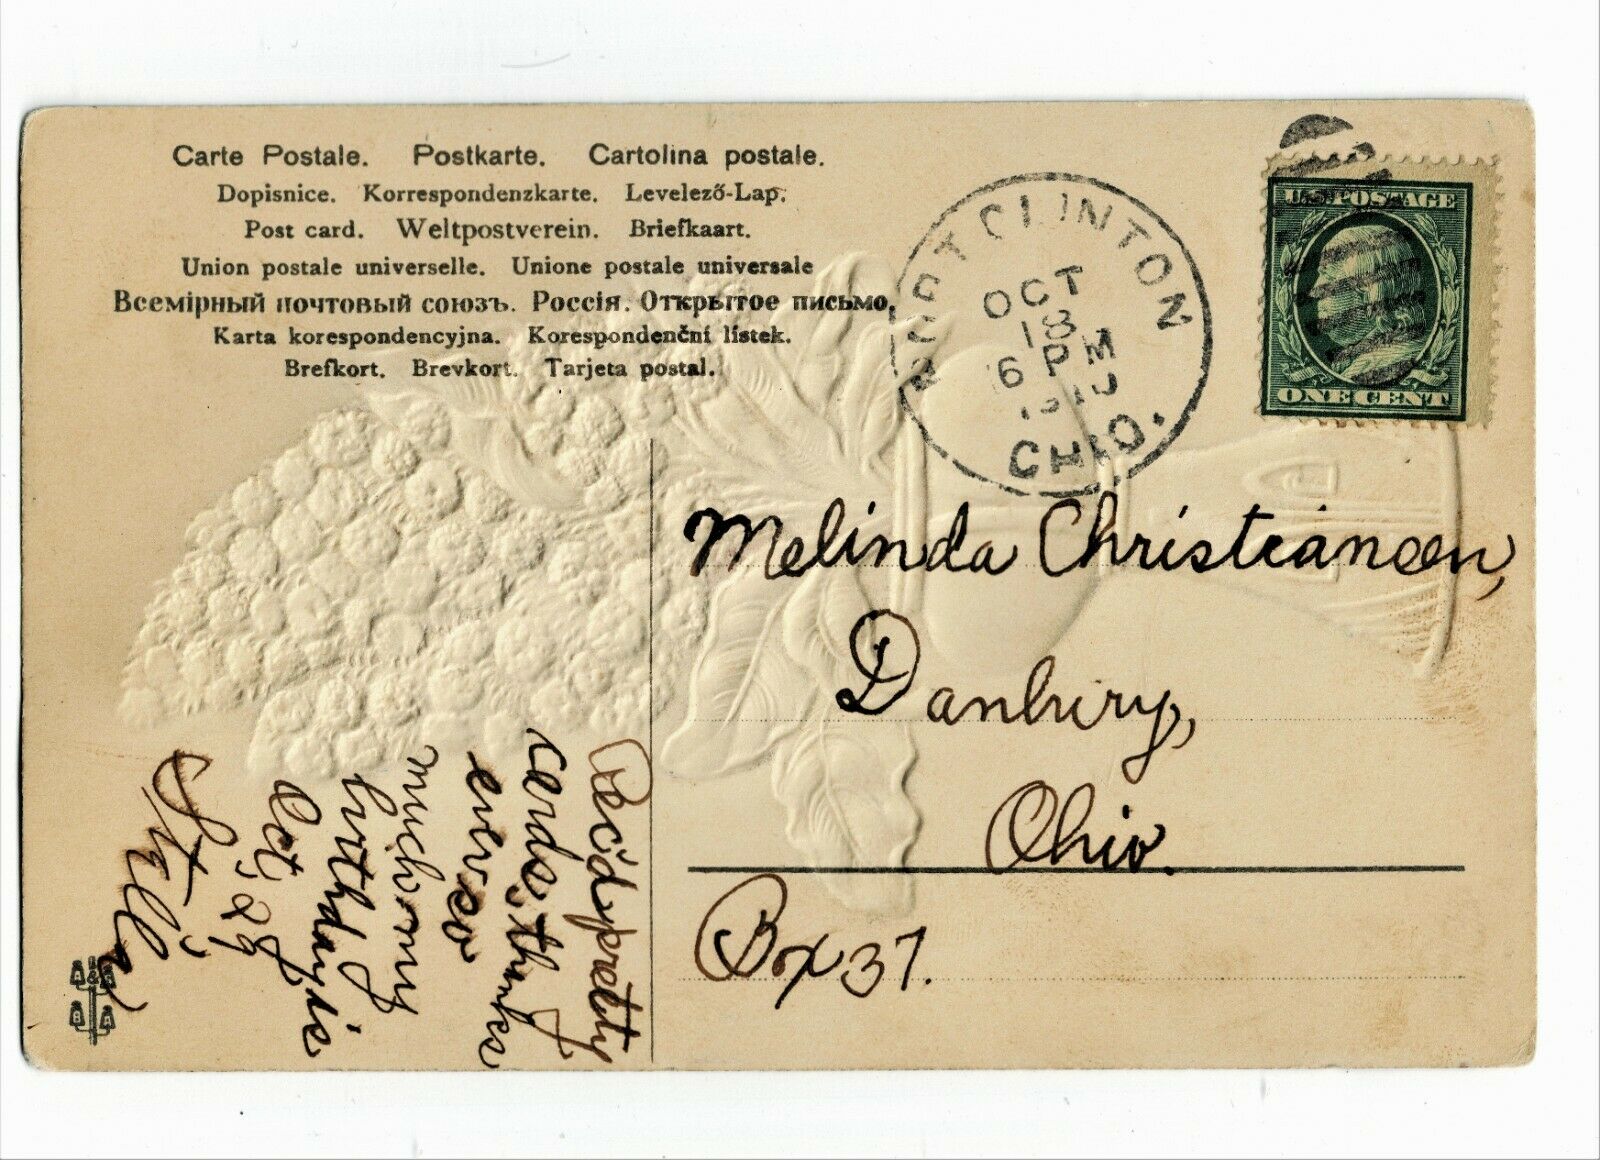 Carte Postale. Postkarte. Cartolina postale.
Dopisnice. Korrespondenzkarte. Levelező-Lap.
Post card. Weltpostverein. Briefkaart.
Union postale universelle. Unione postale universale
Всемірный почтовый союзъ. Россія. Открытое письмо,
Karta korespondencyjna. Korespondenční lístek.
Brefkort. Brevkort. Tarjeta postal.
PORT CLINTON
OCT
18
6 PM
1910
OHIO.
U.S. POSTAGE
ONE CENT
Melinda Christiansen,
Danbury,
Ohio.
Box 37.
Rec'd pretty
cards, thanks
ever so
much. my
birthday is
Oct, 29
Stella
A & S
B A